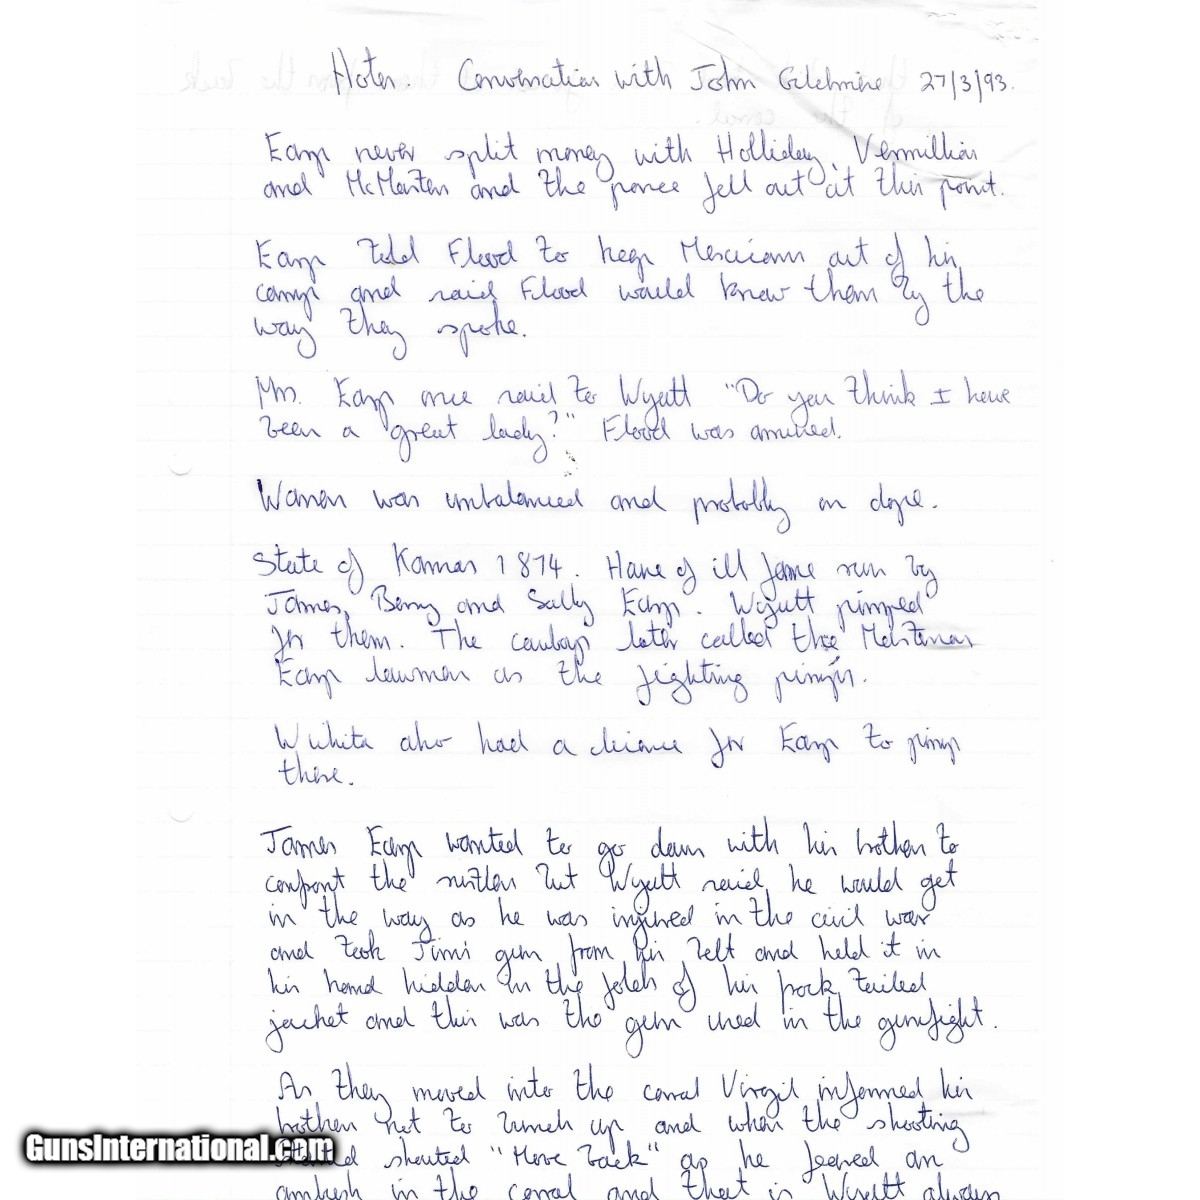 Notes. Conversation with John Gilchriese 27/3/93.
Earp never split money with Holliday, Vermillion
and McMasters and the posse fell out at this point.
Earp told Flood to keep Mexicans out of his
camp and said Flood would know them by the
way they spoke.
Mrs. Earp once said to Wyatt "Do you think I have
been a great lady?" Flood was amused.
Warren was unbalanced and probably on dope.
State of Kansas 1874. House of ill fame run by
James, Bessy and Sally Earp. Wyatt pimped
for them. The cowboys later called the
Earp lawmen as the fighting pimps.
Wichita also had a license for Earp to pimp
there.
James Earp wanted to go down with his brothers to
confront the rustlers but Wyatt said he would get
in the way as he was injured in the civil war
and took Jim's gun from his belt and held it in
his hand hidden in the folds of his frock tailed
jacket and this was the gun used in the gunfight.
As they moved into the corral Virgil informed his
brothers not to bunch up and when the shooting
started shouted "Move back" as he feared an
ambush in the corral and that is Wyatt always
GunsInternational.com